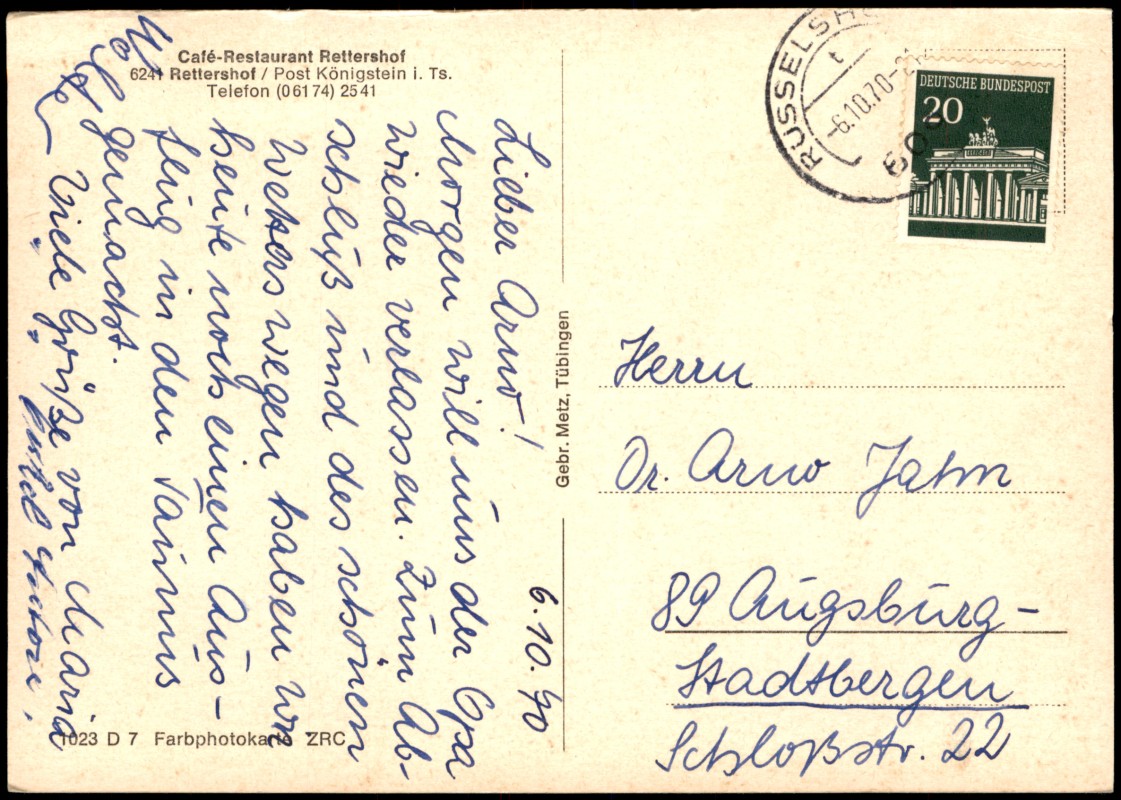 Café-Restaurant Rettershof
6241 Rettershof / Post Königstein i. Ts.
Telefon (0 61 74) 2541
6.10.70
Lieber Arno!
Morgen will uns der Opa
wieder verlassen. Zum Ab-
schluß und des schönen
Wetters wegen haben wir
heute noch einen Aus-
flug in den Taunus
gemacht.
Viele Grüße von Maria
1023 D 7 Farbphotokarte ZRC
Gebr. Metz, Tübingen
RÜSSELSH
-6.10.70-2
609
DEUTSCHE BUNDESPOST
20
Herrn
Dr. Arno Jahn
89 Augsburg-
Stadtbergen
Schloßstr. 22